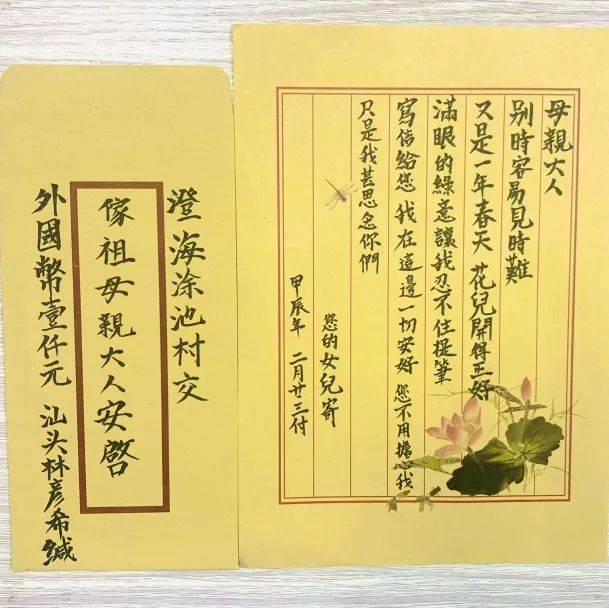 母親大人
别時容易見時難
又是一年春天 花兒開得正好
滿眼的綠意讓我忍不住提筆
寫信給您 我在這邊一切安好 您不用擔心我
只是我甚思念你們
您的女兒寄
甲辰年 二月廿三付
澄海涂池村交
傢祖母親大人安啓
外國幣壹仟元 汕头林彦希缄